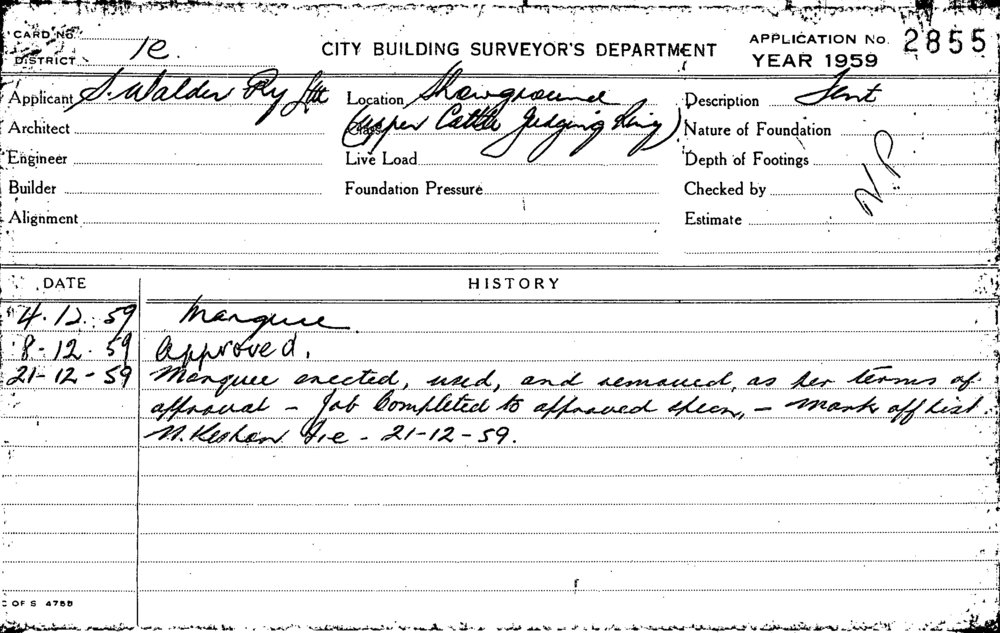 CARD No.
DISTRICT 1e.
CITY BUILDING SURVEYOR'S DEPARTMENT
APPLICATION No. 2855
YEAR 1959
Applicant S. Walder Pty Ltd
Location Showground
Description Tent
Architect
Class (Upper Cattle Judging Ring)
Nature of Foundation
Engineer
Live Load
Depth of Footings
Builder
Foundation Pressure
Checked by
NP
Alignment
Estimate
DATE HISTORY
4.12.59 Marquee
8-12-59 Approved.
21-12-59 Marquee erected, used, and removed, as per terms of
approval - Job Completed to approved specn, - Mark off list
21-12-59.
C OF S 475B